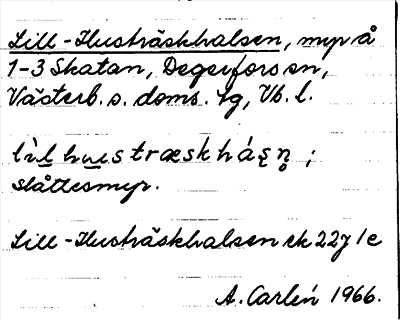 Lill-Husträskhalsen, myr å
1-3 Skatan, Degerfors sn,
Västerb. s. doms. tg, Vb. l.
slåttesmyr.
Lill-Husträskhalsen ek 22y 1e
A. Carlén 1966.